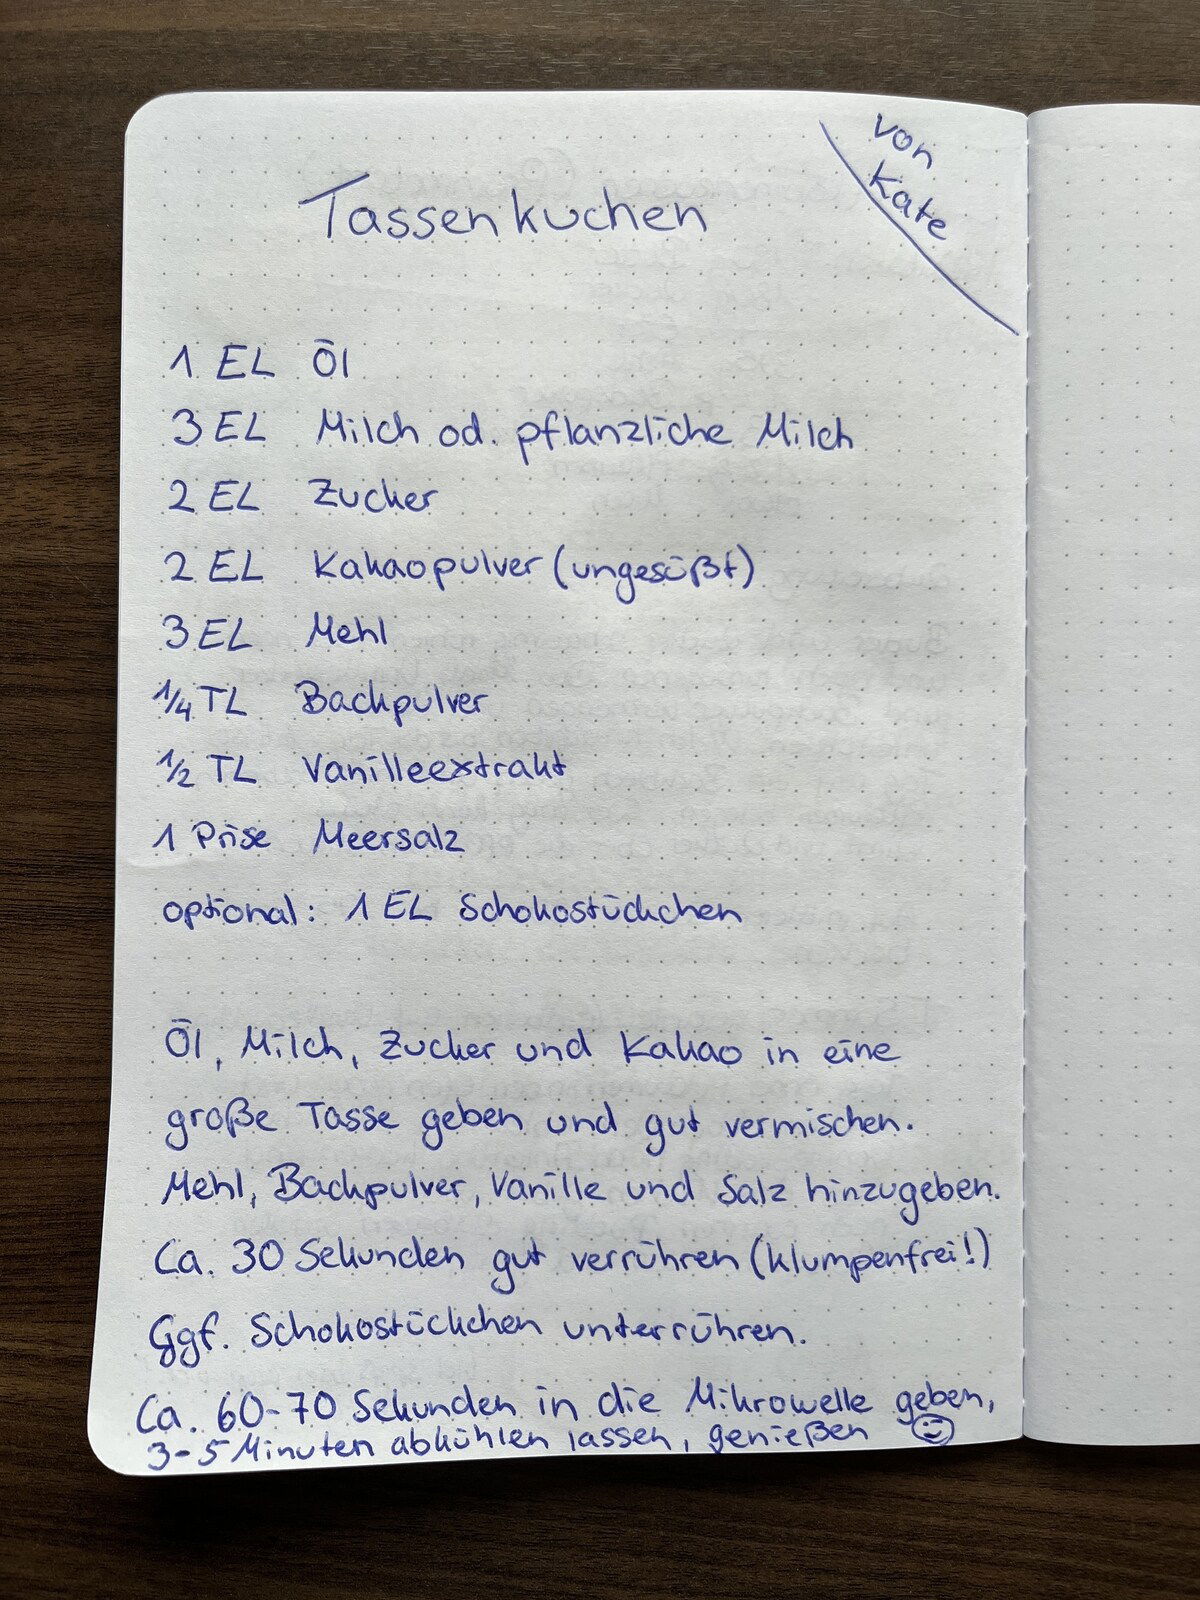 von
Kate
Tassenkuchen
1 EL Öl
3 EL Milch od. pflanzliche Milch
2 EL Zucker
2 EL Kakaopulver (ungesüßt)
3 EL Mehl
1/4 TL Backpulver
1/2 TL Vanilleextrakt
1 Prise Meersalz
optional: 1 EL Schokostückchen
Öl, Milch, Zucker und Kakao in eine
große Tasse geben und gut vermischen.
Mehl, Backpulver, Vanille und Salz hinzugeben.
Ca. 30 Sekunden gut verrühren (klumpenfrei!)
Ggf. Schokostückchen unterrühren.
Ca. 60-70 Sekunden in die Mikrowelle geben,
3-5 Minuten abkühlen lassen, genießen